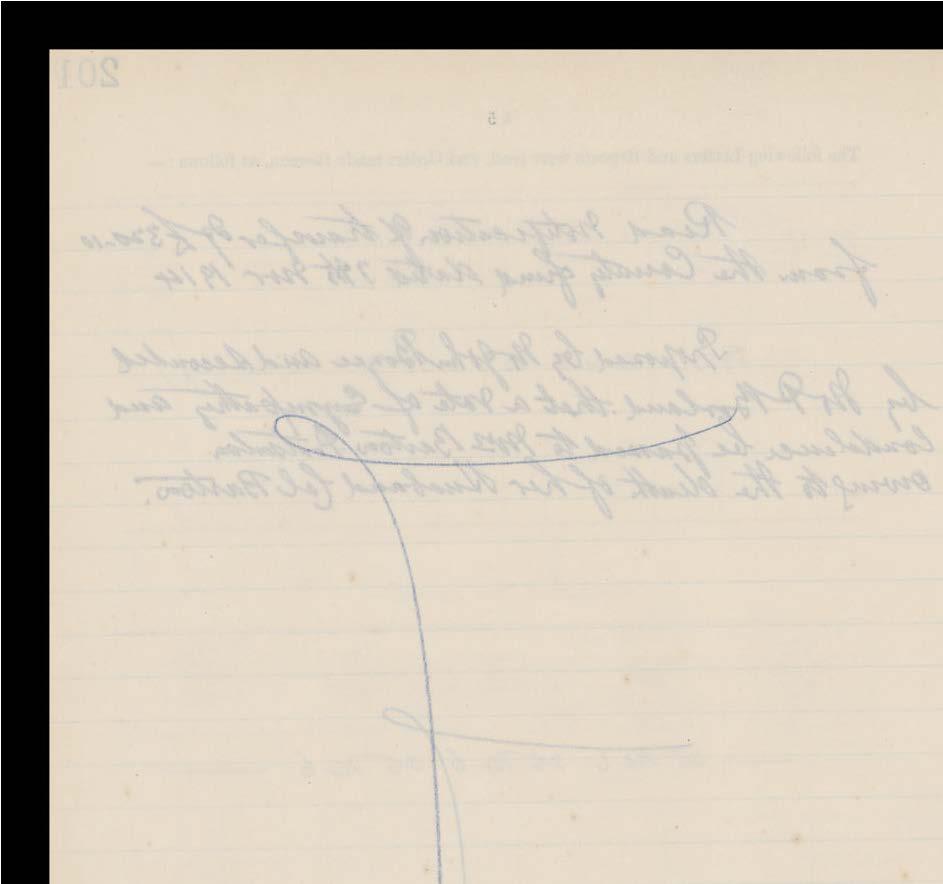 201
5
The following Letters and Reports were read, and Orders made thereon, as follows :—
Read Notification of transfer of £320.10
from the County fund dated 7th Nov 1914
Proposed by Mr John and seconded
by Mr P that a vote of Sympathy and
Condolence be passed to Mrs Barton
owing to the death of her Husband Col Barton.